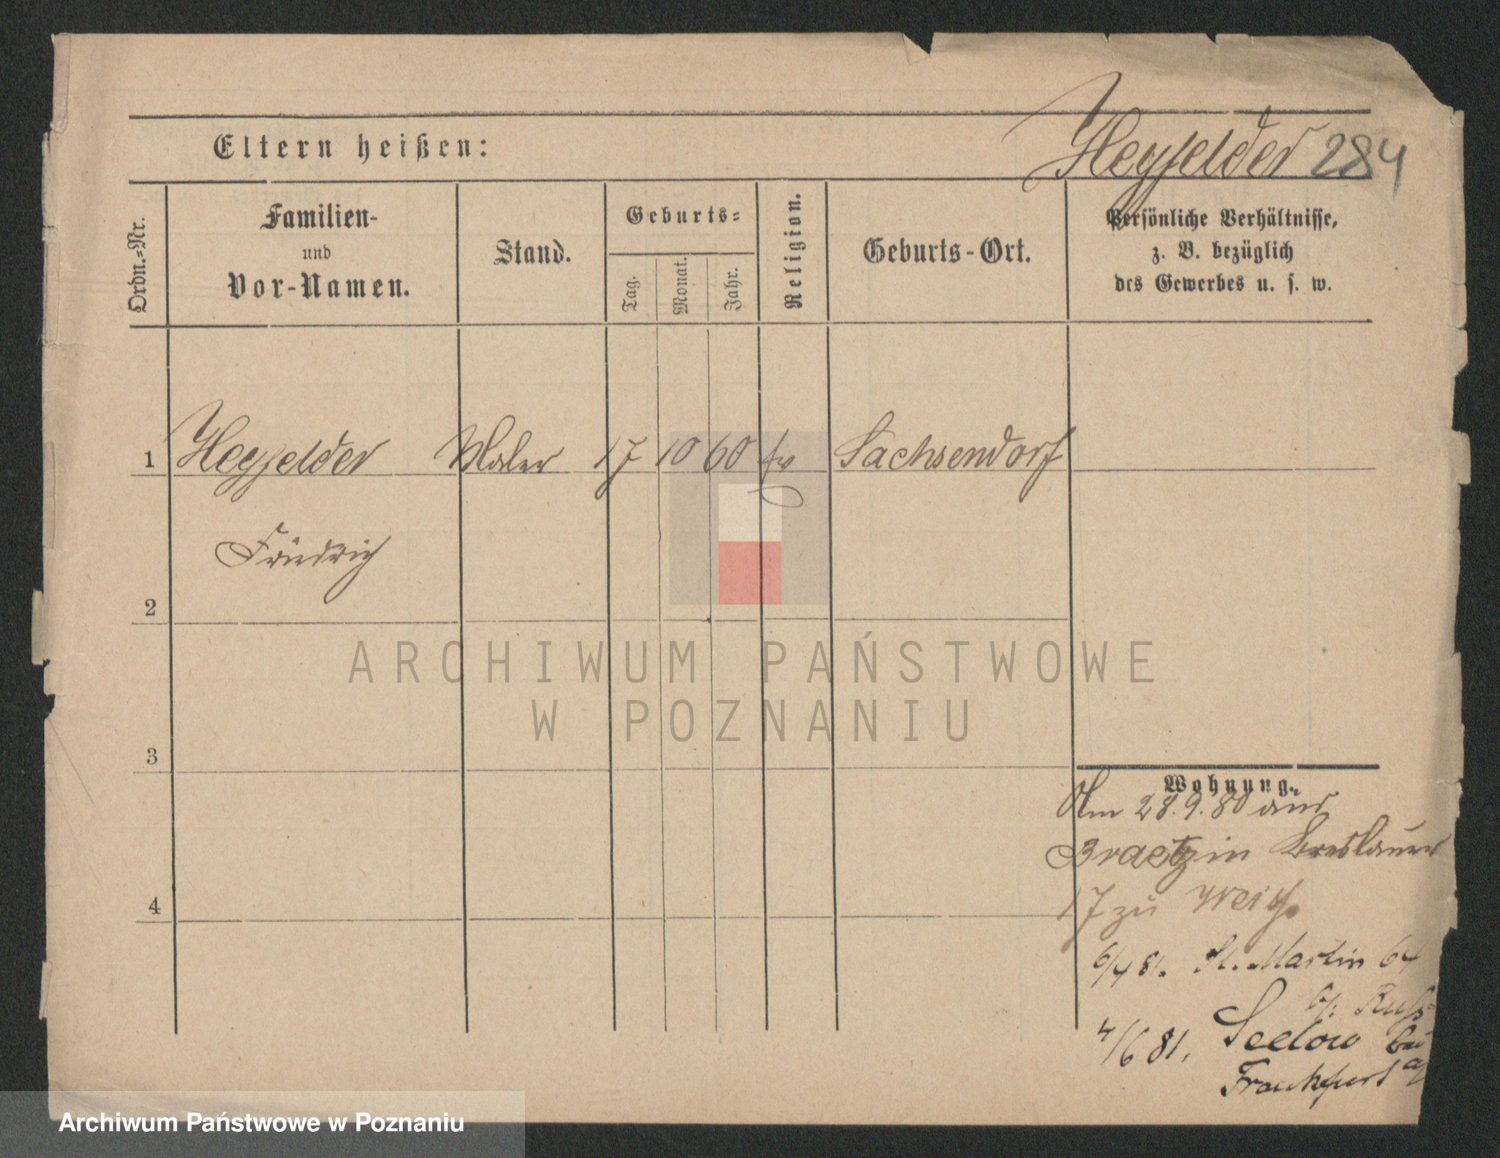 Eltern heißen:
Heyfelder 284
Ordn.-Nr.
Familien-
und
Vor-Namen.
Stand.
Geburts-
Tag.
Monat.
Jahr.
Religion.
Geburts-Ort.
Persönliche Verhältnisse,
z. B. bezüglich
des Gewerbes u. s. w.
1 Heyfelder Maler 17 10 60 ev Sachsendorf
Friedrich
2
3
4
Wohnung.
Am 28.9.80 aus
Braetz in Breslauer
17 zu
6/4 81. St. Martin 64
4/6 81. Seelow bei
Frankfurt a/
ARCHIWUM PAŃSTWOWE
W POZNANIU
Archiwum Państwowe w Poznaniu